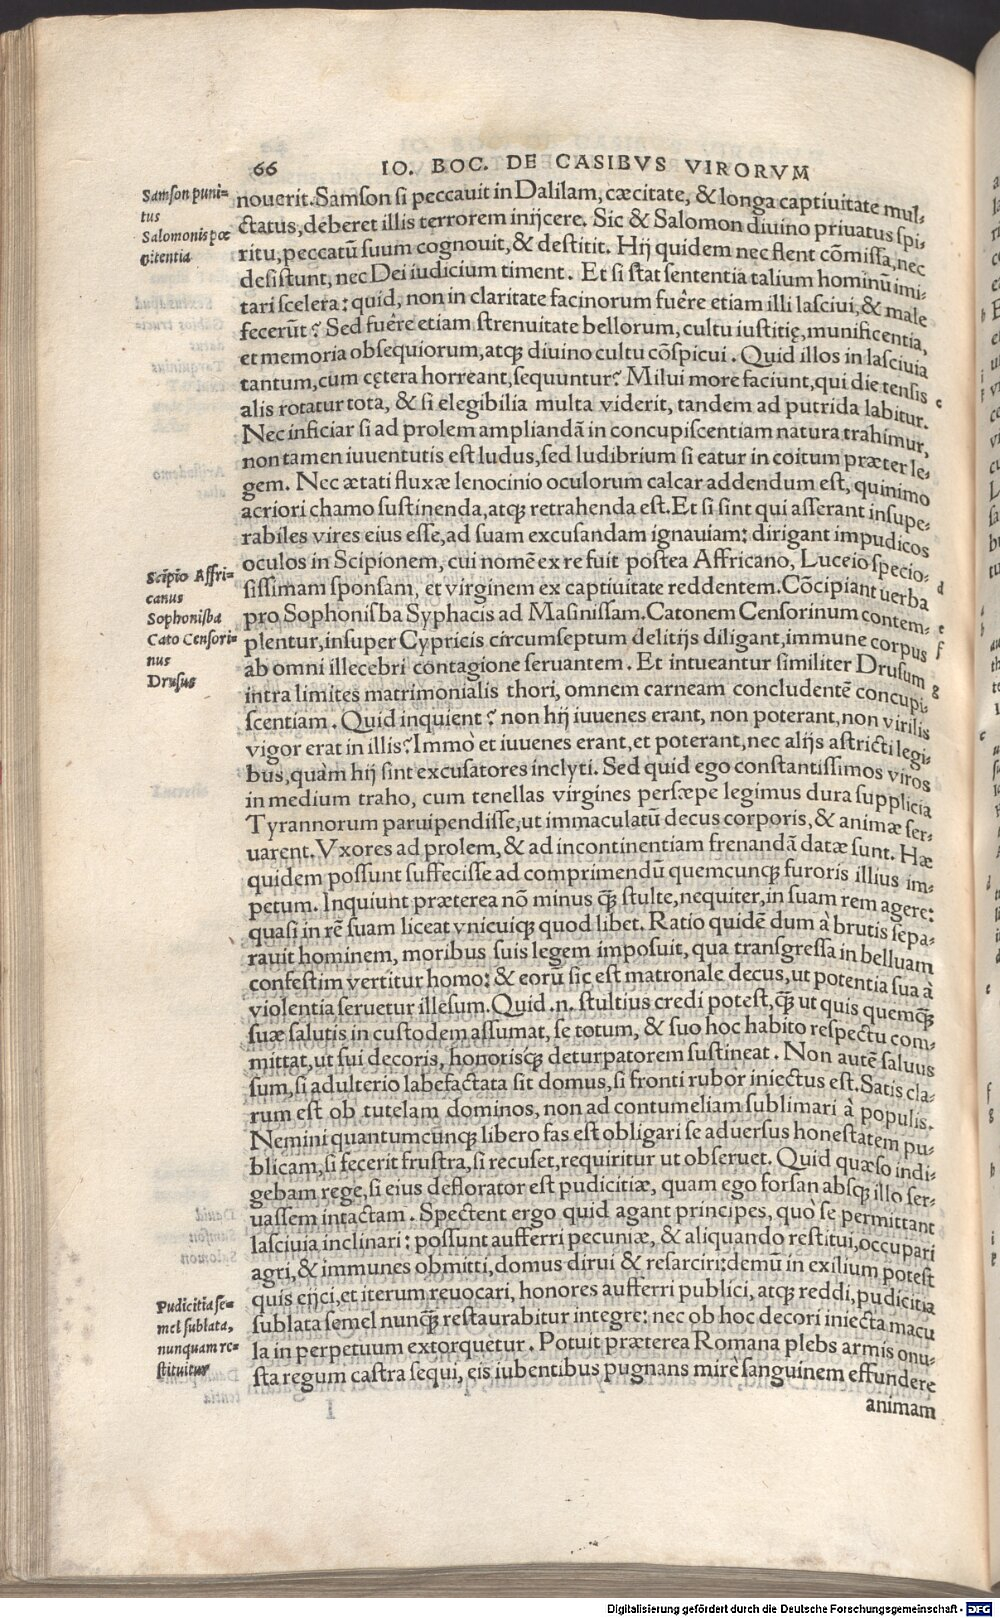 66 IO. BOC. DE CASIBVS VIRORVM
Samson puni=
tus
Salomonis pœ
nitentia
nouerit. Samson si peccauit in Dalilam, cæcitate, & longa captiuitate mul-
ctatus, deberet illis terrorem inijcere. Sic & Salomon diuino priuatus spi-
ritu, peccatū suum cognouit, & destitit. Hij quidem nec flent cōmissa, nec
desistunt, nec Dei iudicium timent. Et si stat sententia talium hominū imi-
tari scelera: quid, non in claritate facinorum fuêre etiam illi lasciui, & male
fecerūt? Sed fuêre etiam strenuitate bellorum, cultu iustitię, munificentia,
et memoria obsequiorum, atq; diuino cultu cōspicui. Quid illos in lasciuia
tantum, cum cętera horreant, sequuntur? Milui more faciunt, qui die tensis
alis rotatur tota, & si elegibilia multa viderit, tandem ad putrida labitur. c
Nec inficiar si ad prolem ampliandā in concupiscentiam natura trahimur,
non tamen iuuentutis est ludus, sed ludibrium si eatur in coitum præter le-
gem. Nec ætati fluxæ lenocinio oculorum calcar addendum est, quinimo
acriori chamo sustinenda, atq; retrahenda est. Et si sint qui asserant insupe-
rabiles vires eius esse, ad suam excusandam ignauiam: dirigant impudicos
oculos in Scipionem, cui nomē ex re fuit postea Affricano, Luceio specio-
sissimam sponsam, et virginem ex captiuitate reddentem. Cōcipiant uerba d
pro Sophonisba Syphacis ad Masinissam. Catonem Censorinum contem- e
plentur, insuper Cypricis circumseptum delitijs diligant, immune corpus f
ab omni illecebri contagione seruantem. Et intueantur similiter Drusum g
intra limites matrimonialis thori, omnem carneam concludentē concupi-
scentiam. Quid inquient? non hij iuuenes erant, non poterant, non virilis
vigor erat in illis? Immò et iuuenes erant, et poterant, nec alijs astricti legi-
bus, quàm hij sint excusatores inclyti. Sed quid ego constantissimos viros
in medium traho, cum tenellas virgines persæpe legimus dura supplicia
Tyrannorum paruipendisse, ut immaculatū decus corporis, & animæ ser-
uarent. Vxores ad prolem, & ad incontinentiam frenandā datæ sunt. Hæ
quidem possunt suffecisse ad comprimendū quemcunq; furoris illius im-
petum. Inquiunt præterea nō minus q̄; stulte, nequiter, in suam rem agere:
quasi in rē suam liceat vnicuiq; quod libet. Ratio quidē dum à brutis sepa-
rauit hominem, moribus suis legem imposuit, qua transgressa in belluam
confestim vertitur homo: & eorū sic est matronale decus, ut potentia sua à
violentia seruetur illesum. Quid .n. stultius credi potest, q̄; ut quis quemq̄;
suæ salutis in custodem assumat, se totum, & suo hoc habito respectu com-
mittat, ut sui decoris, honorisq; deturpatorem sustineat. Non autē saluus
sum, si adulterio labefactata sit domus, si fronti rubor iniectus est. Satis cla-
rum est ob tutelam dominos, non ad contumeliam sublimari à populis.
Nemini quantumcunq; libero fas est obligari se aduersus honestatem pu-
blicam, si fecerit frustra, si recuset, requiritur ut obseruet. Quid quæso indi-
gebam rege, si eius deflorator est pudicitiæ, quam ego forsan absq; illo ser-
uassem intactam. Spectent ergo quid agant principes, quò se permittant
lasciuia inclinari: possunt aufferri pecuniæ, & aliquando restitui, occupari
agri, & immunes obmitti, domus dirui & resarciri: demū in exilium potest
quis eijci, et iterum reuocari, honores aufferri publici, atq; reddi, pudicitia
sublata semel nunq̄; restaurabitur integre: nec ob hoc decori iniecta macu
la in perpetuum extorquetur. Potuit præterea Romana plebs armis onu-
sta regum castra sequi, eis iubentibus pugnans mirè sanguinem effundere
animam
Scipio Affri=
canus
Sophonisba
Cato Censori=
nus
Drusus
Pudicitia se=
mel sublata,
nunquam re=
stituitur
Digitalisierung gefördert durch die Deutsche Forschungsgemeinschaft - DFG